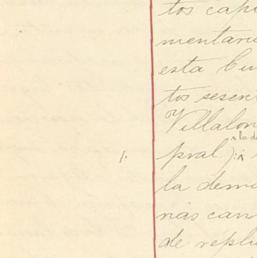 tos cap
mentari
esta bu
tos sesen
Villalon
a la d
1. pral.):
la dem
nas can
de repli